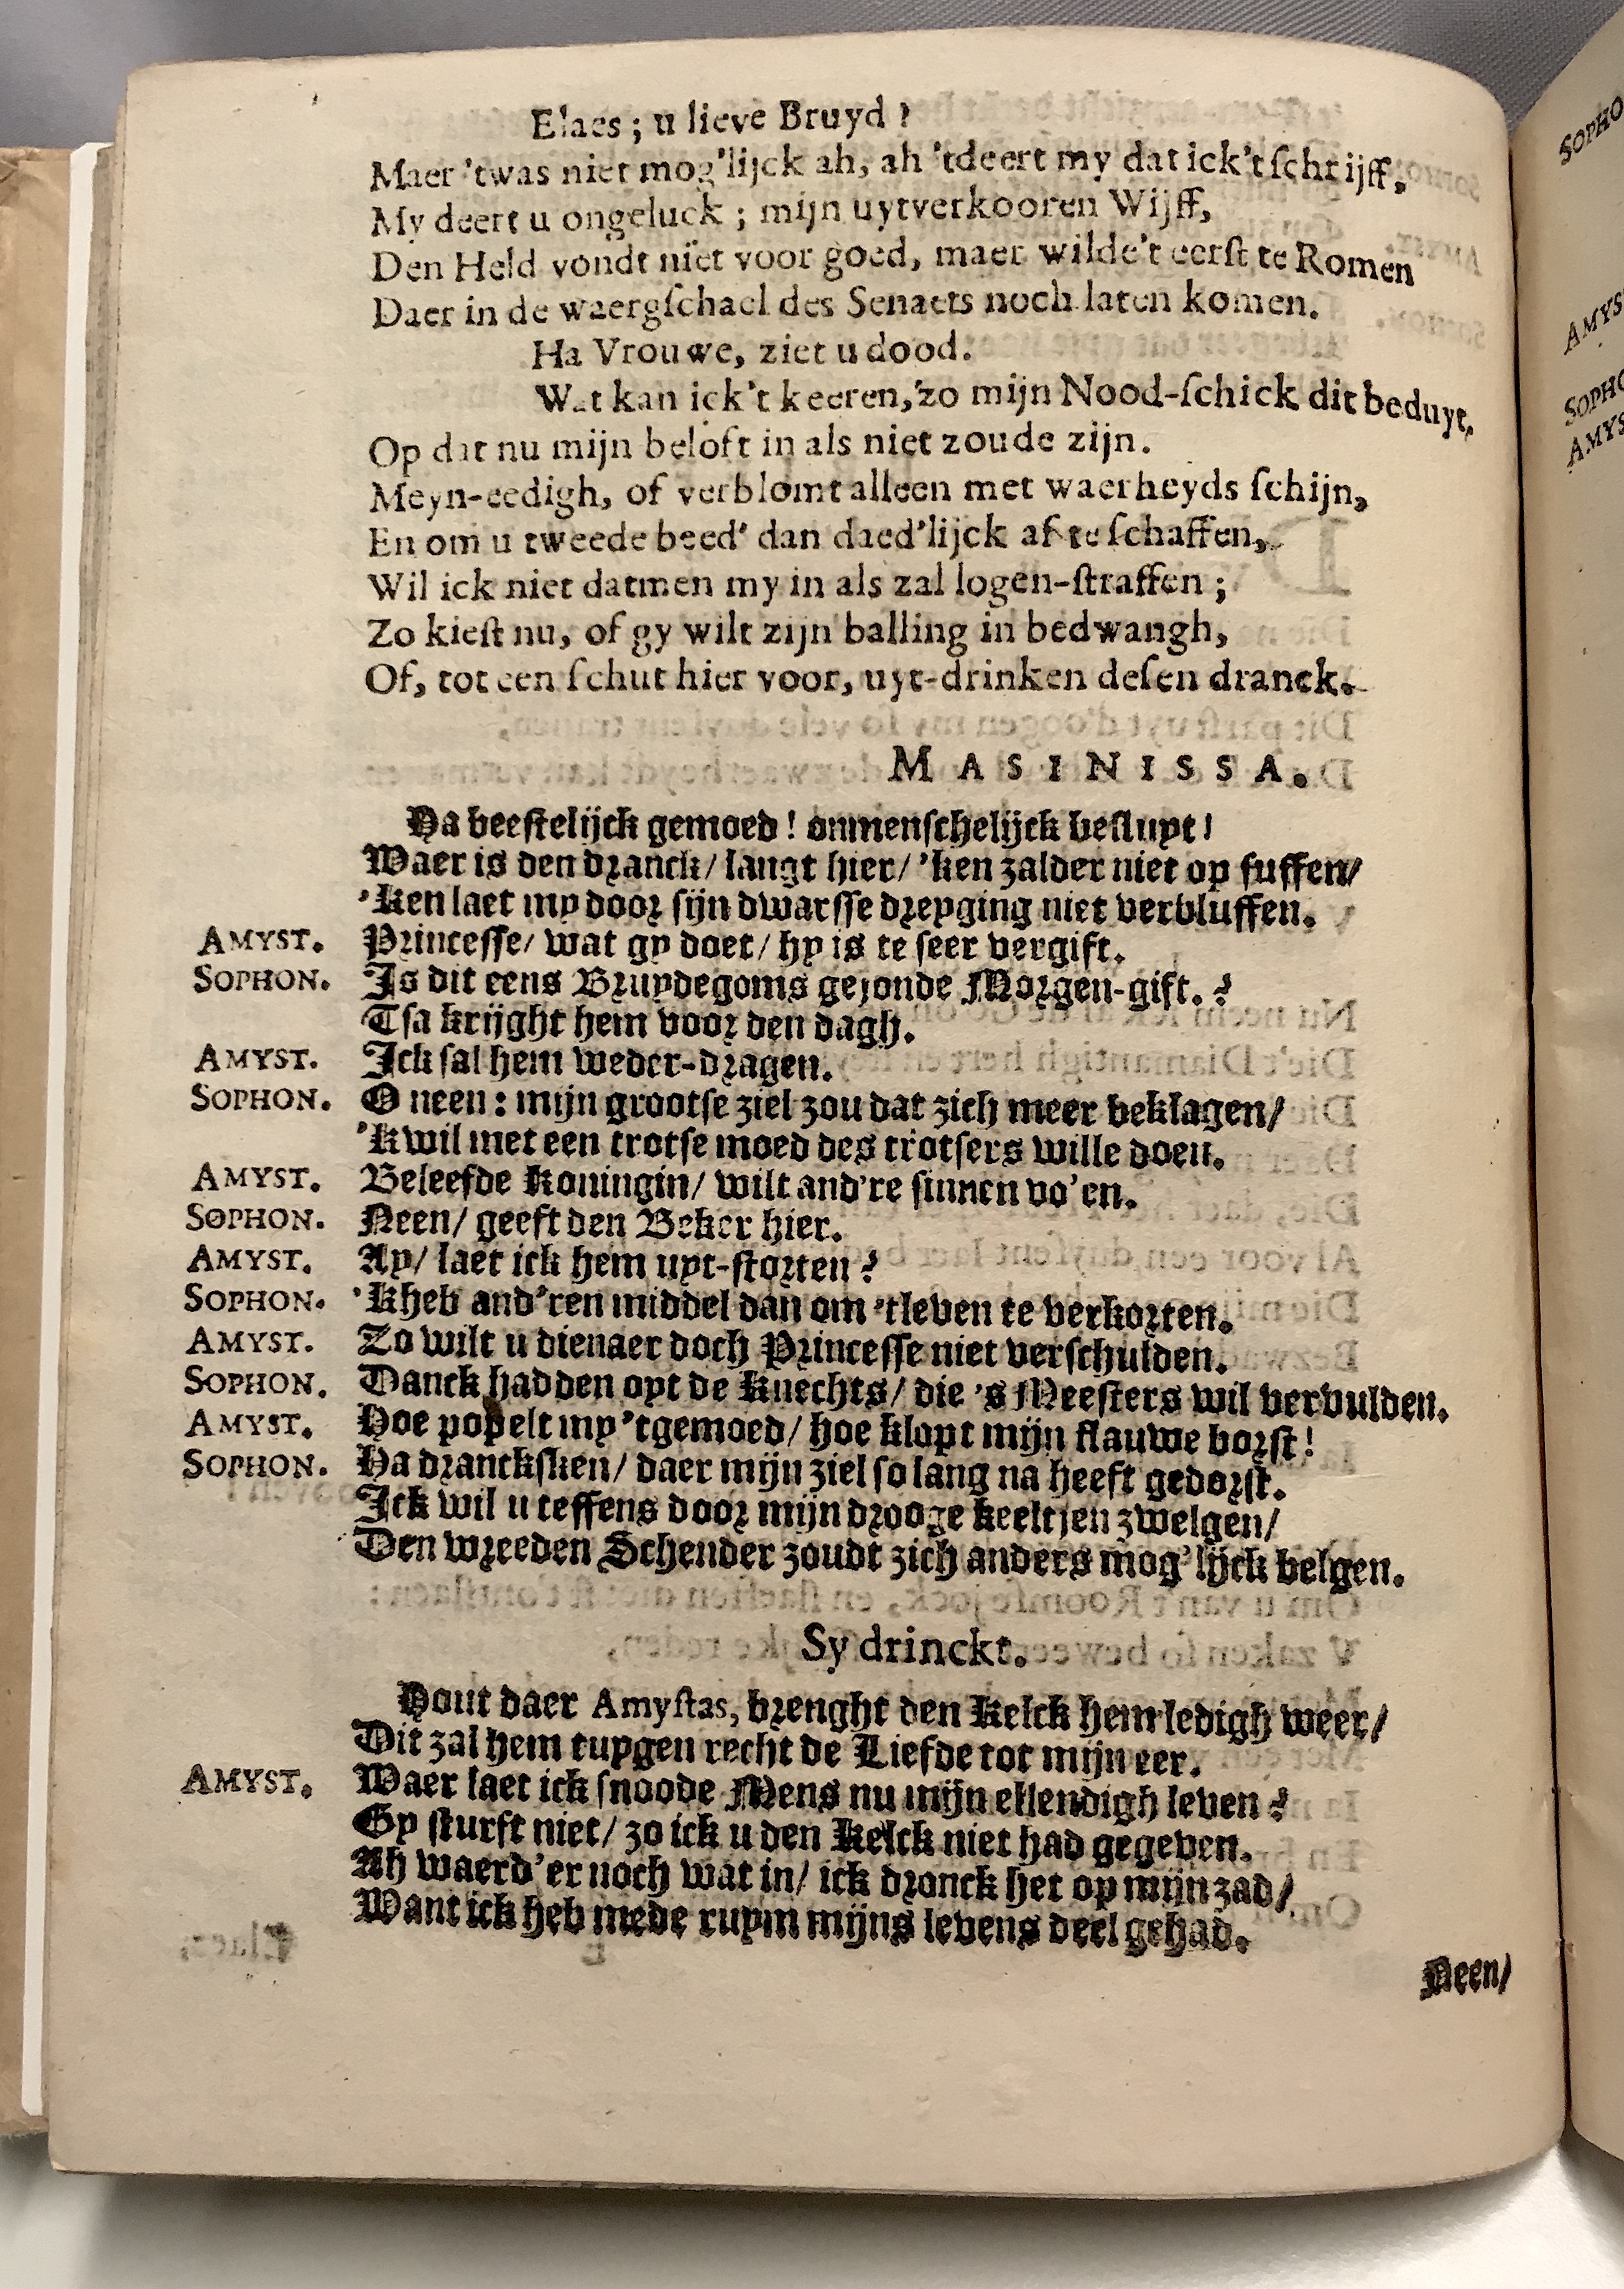 Elaes; u lieve Bruyd?
Maer 'twas niet mog'lijck ah, ah 'tdeert my dat ick't schrijff,
My deert u ongeluck; mijn uytverkooren Wijff,
Den Held vondt niet voor goed, maer wilde't eerst te Romen
Daer in de waergschael des Senaets noch laten komen.
Ha Vrouwe, ziet u dood.
Wat kan ick't keeren, zo mijn Nood-schick dit beduyt,
Op dat nu mijn beloft in als niet zoude zijn.
Meyn-eedigh, of verblomt alleen met waerheyds schijn,
En om u tweede beed' dan daed'lijck af te schaffen,
Wil ick niet datmen my in als zal logen-straffen;
Zo kiest nu, of gy wilt zijn balling in bedwangh,
Of, tot een schut hier voor, uyt-drinken desen dranck.
MASINISSA.
Ha beestelijck gemoed! onmenschelijck besluyt!
Waer is den dranck/ langt hier/ 'ken zalder niet op suffen/
'Ken laet my door sijn dwarsse dreyging niet verbluffen.
AMYST. Princesse/ wat gy doet/ hy is te seer vergift.
SOPHON. Is dit eens Bruydegoms gejonde Morgen-gift.?
Tsa krijght hem voor den dagh.
AMYST. Ick sal hem weder-dragen.
SOPHON. O neen: mijn grootse ziel zou dat zich meer beklagen/
'Kwil met een trotse moed des trotsers wille doen.
AMYST. Beleefde Koningin/ wilt and're sinnen vo'en.
SOPHON. Neen/ geeft den Beker hier.
AMYST. Ay/ laet ick hem uyt-storten?
SOPHON. 'Kheb and'ren middel dan om 'tleven te verkorten.
AMYST. Zo wilt u dienaer doch Princesse niet verschulden.
SOPHON. Danck hadden oyt de Knechts/ die 's Meesters wil vervulden.
AMYST. Hoe popelt my 'tgemoed/ hoe klopt mijn flauwe borst!
SOPHON. Ha drancksken/ daer mijn ziel so lang na heeft gedorst.
Ick wil u teffens door mijn drooge keeltjen zwelgen/
Den wreeden Schender zoudt zich anders mog'lijck belgen.
Sy drinckt.
Hout daer Amystas, brenght den Kelck hem ledigh weer/
Dit zal hem tuygen recht de Liefde tot mijn eer.
AMYST. Waer laet ick snoode Mens nu mijn ellendigh leven?
Gy sturft niet/ zo ick u den Kelck niet had gegeven.
Ah waerd'er noch wat in/ ick dronck het op mijn zad/
Want ick heb mede ruym mijns levens deel gehad.
Neen/